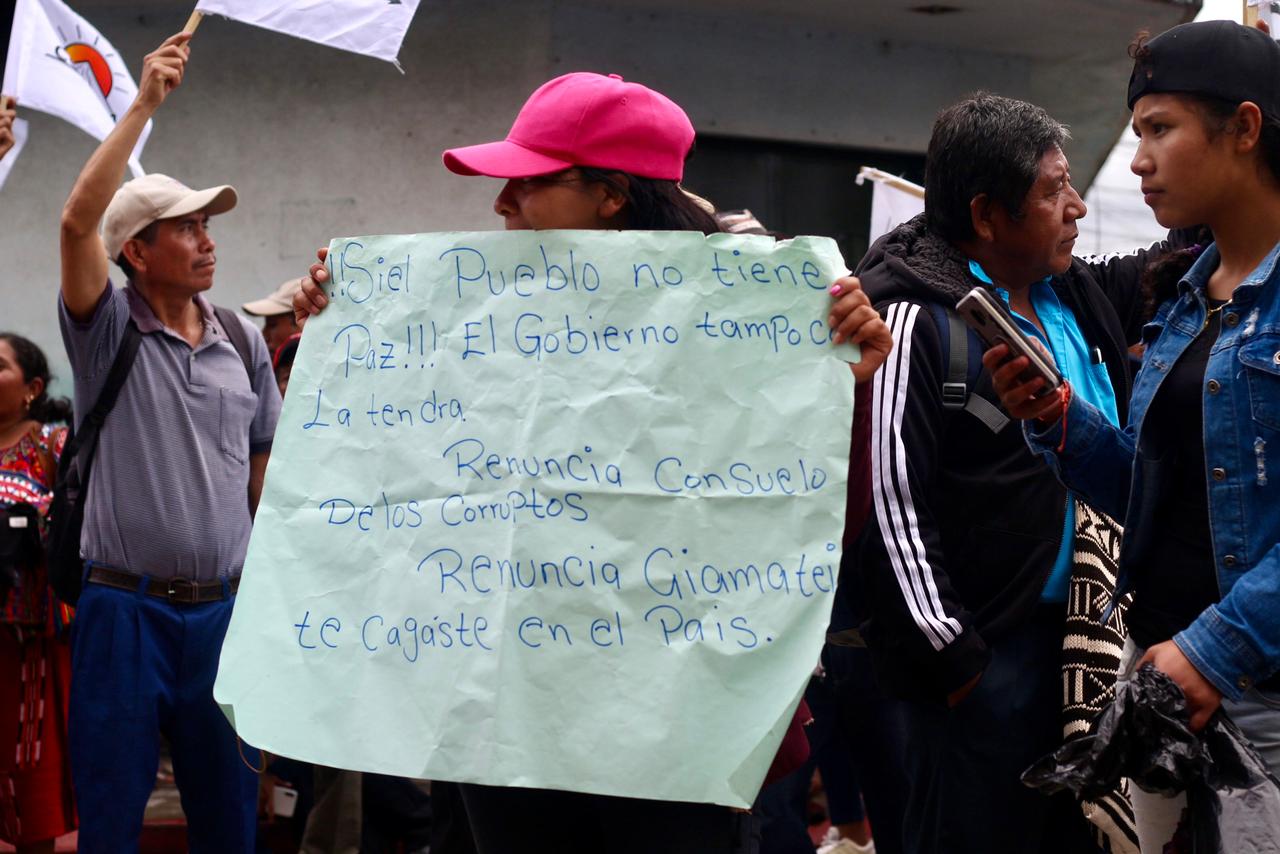 !!Siel Pueblo no tiene
Paz!!! El Gobierno tampoco
La tendra.
Renuncia Consuelo
De los Corruptos
Renuncia Giamatei
te cagaste en el Pais.